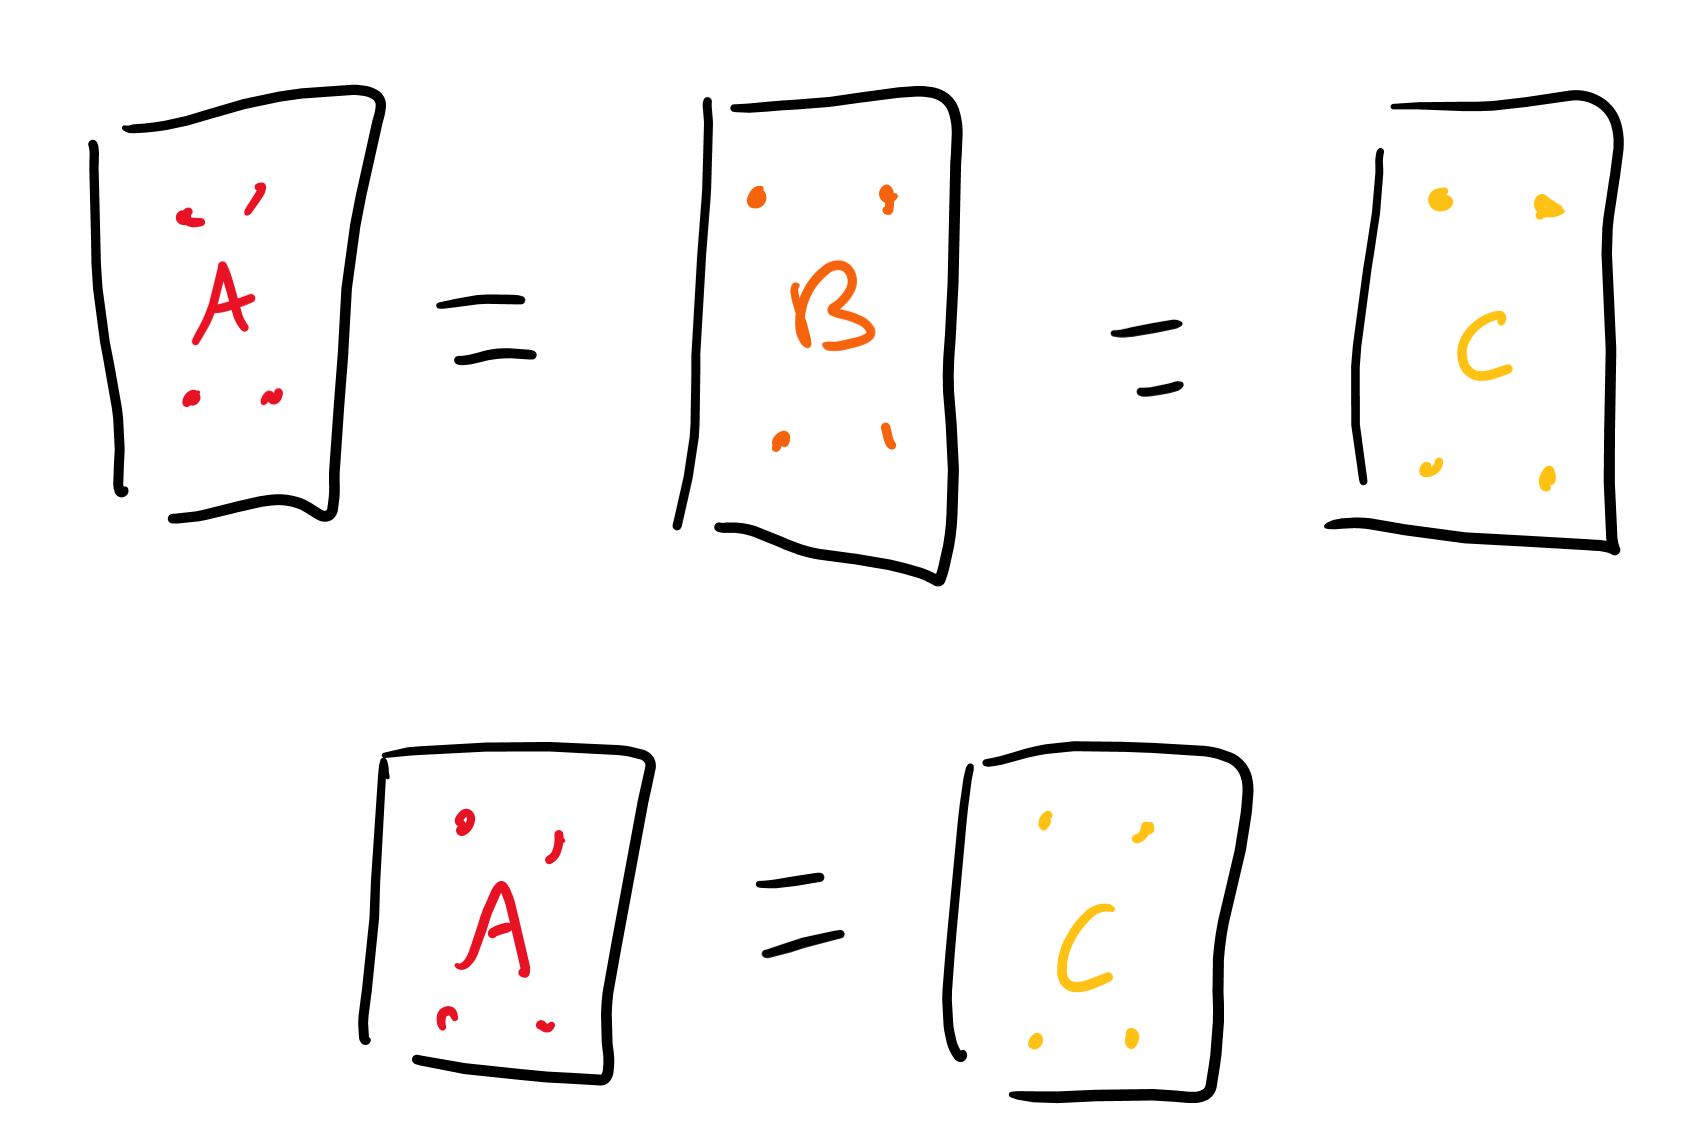 A = B = C
A = C